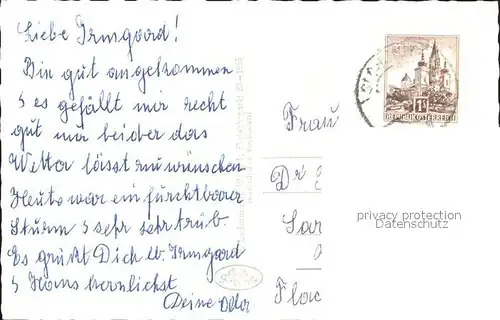 Liebe Irmgard!
Bin gut angekommen
s es gefällt mir recht
gut nur leider das
Wetter lässt zu wünschen
Heute war ein furchtbarer
Sturm s sehr sehr trüb.
Es grüßt Dich lb. Irmgard
s Hans herzlichst
Deine
Frau
Dr
Flac
REPUBLIK ÖSTERREICH
privacy protection
Datenschutz